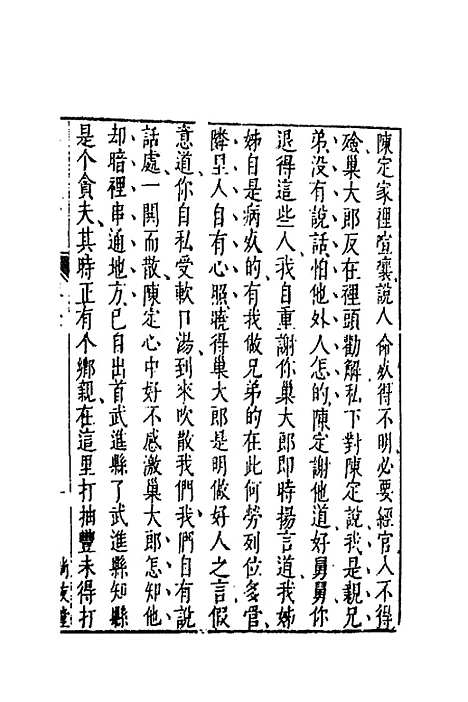 陳定家裡喧嚷說人命死得不明必要經官入不得
殮巢大郎反在裡頭勸解私下對陳定說我是親兄
弟没有說話怕他外人怎的陳定謝他道好舅舅你
退得這些人我自重謝你巢大郎即時揚言道我姊
姊自是病死的有我做兄弟的在此何勞列位多管
隣里人自有心照曉得巢大郎是明做好人之言假
意道你自私受軟口湯到來吹散我們我們自有說
話處一閧而散陳定心中好不感激巢大郎怎知他
却暗裡串通地方已自出首武進縣了武進縣知縣
是个貪夫其時正有个鄉親在這里打抽豐未得打
尚友堂